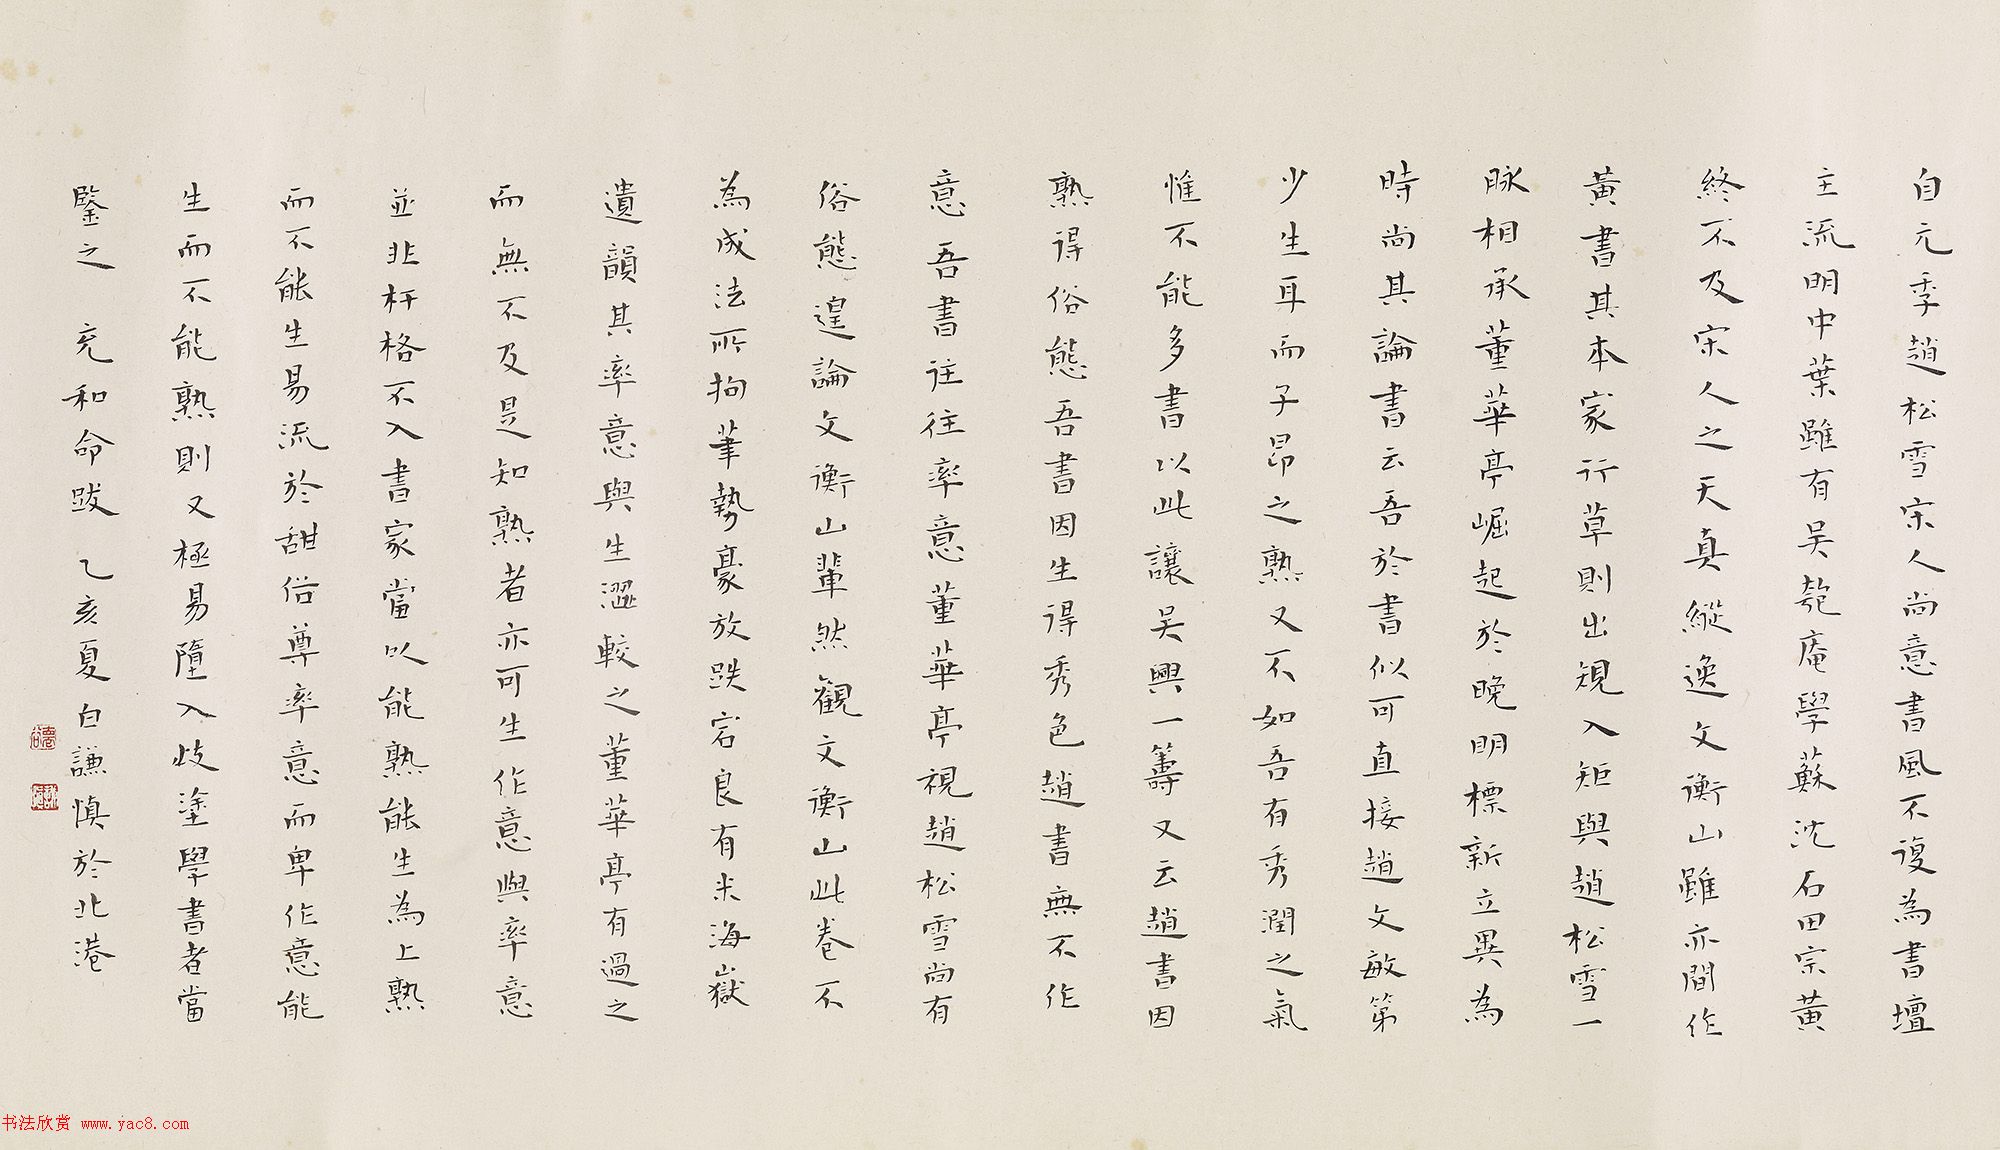 自元季趙松雪宋人尚意書風不復為書壇
主流明中葉雖有吳匏庵學蘇沈石田宗黃
終不及宋人之天真縱逸文衡山雖亦間作
黃書其本家行草則出規入矩與趙松雪一
脉相承董華亭崛起於晚明標新立異為
時尚其論書云吾於書似可直接趙文敏第
少生耳而子昂之熟又不如吾有秀潤之氣
惟不能多書以此讓吳興一籌又云趙書因
熟得俗態吾書因生得秀色趙書無不作
意吾書往往率意董華亭視趙松雪尚有
俗態遑論文衡山輩然觀文衡山此卷不
為成法所拘筆勢豪放跌宕良有米海嶽
遺韻其率意與生澀較之董華亭有過之
而無不及是知熟者亦可生作意與率意
並非杆格不入書家當以能熟能生為上熟
而不能生易流於甜俗尊率意而卑作意能
生而不能熟則又極易墮入歧塗學書者當
鑒之 充和命跋 乙亥夏白謙慎於北港
书法欣赏 www.yac8.com